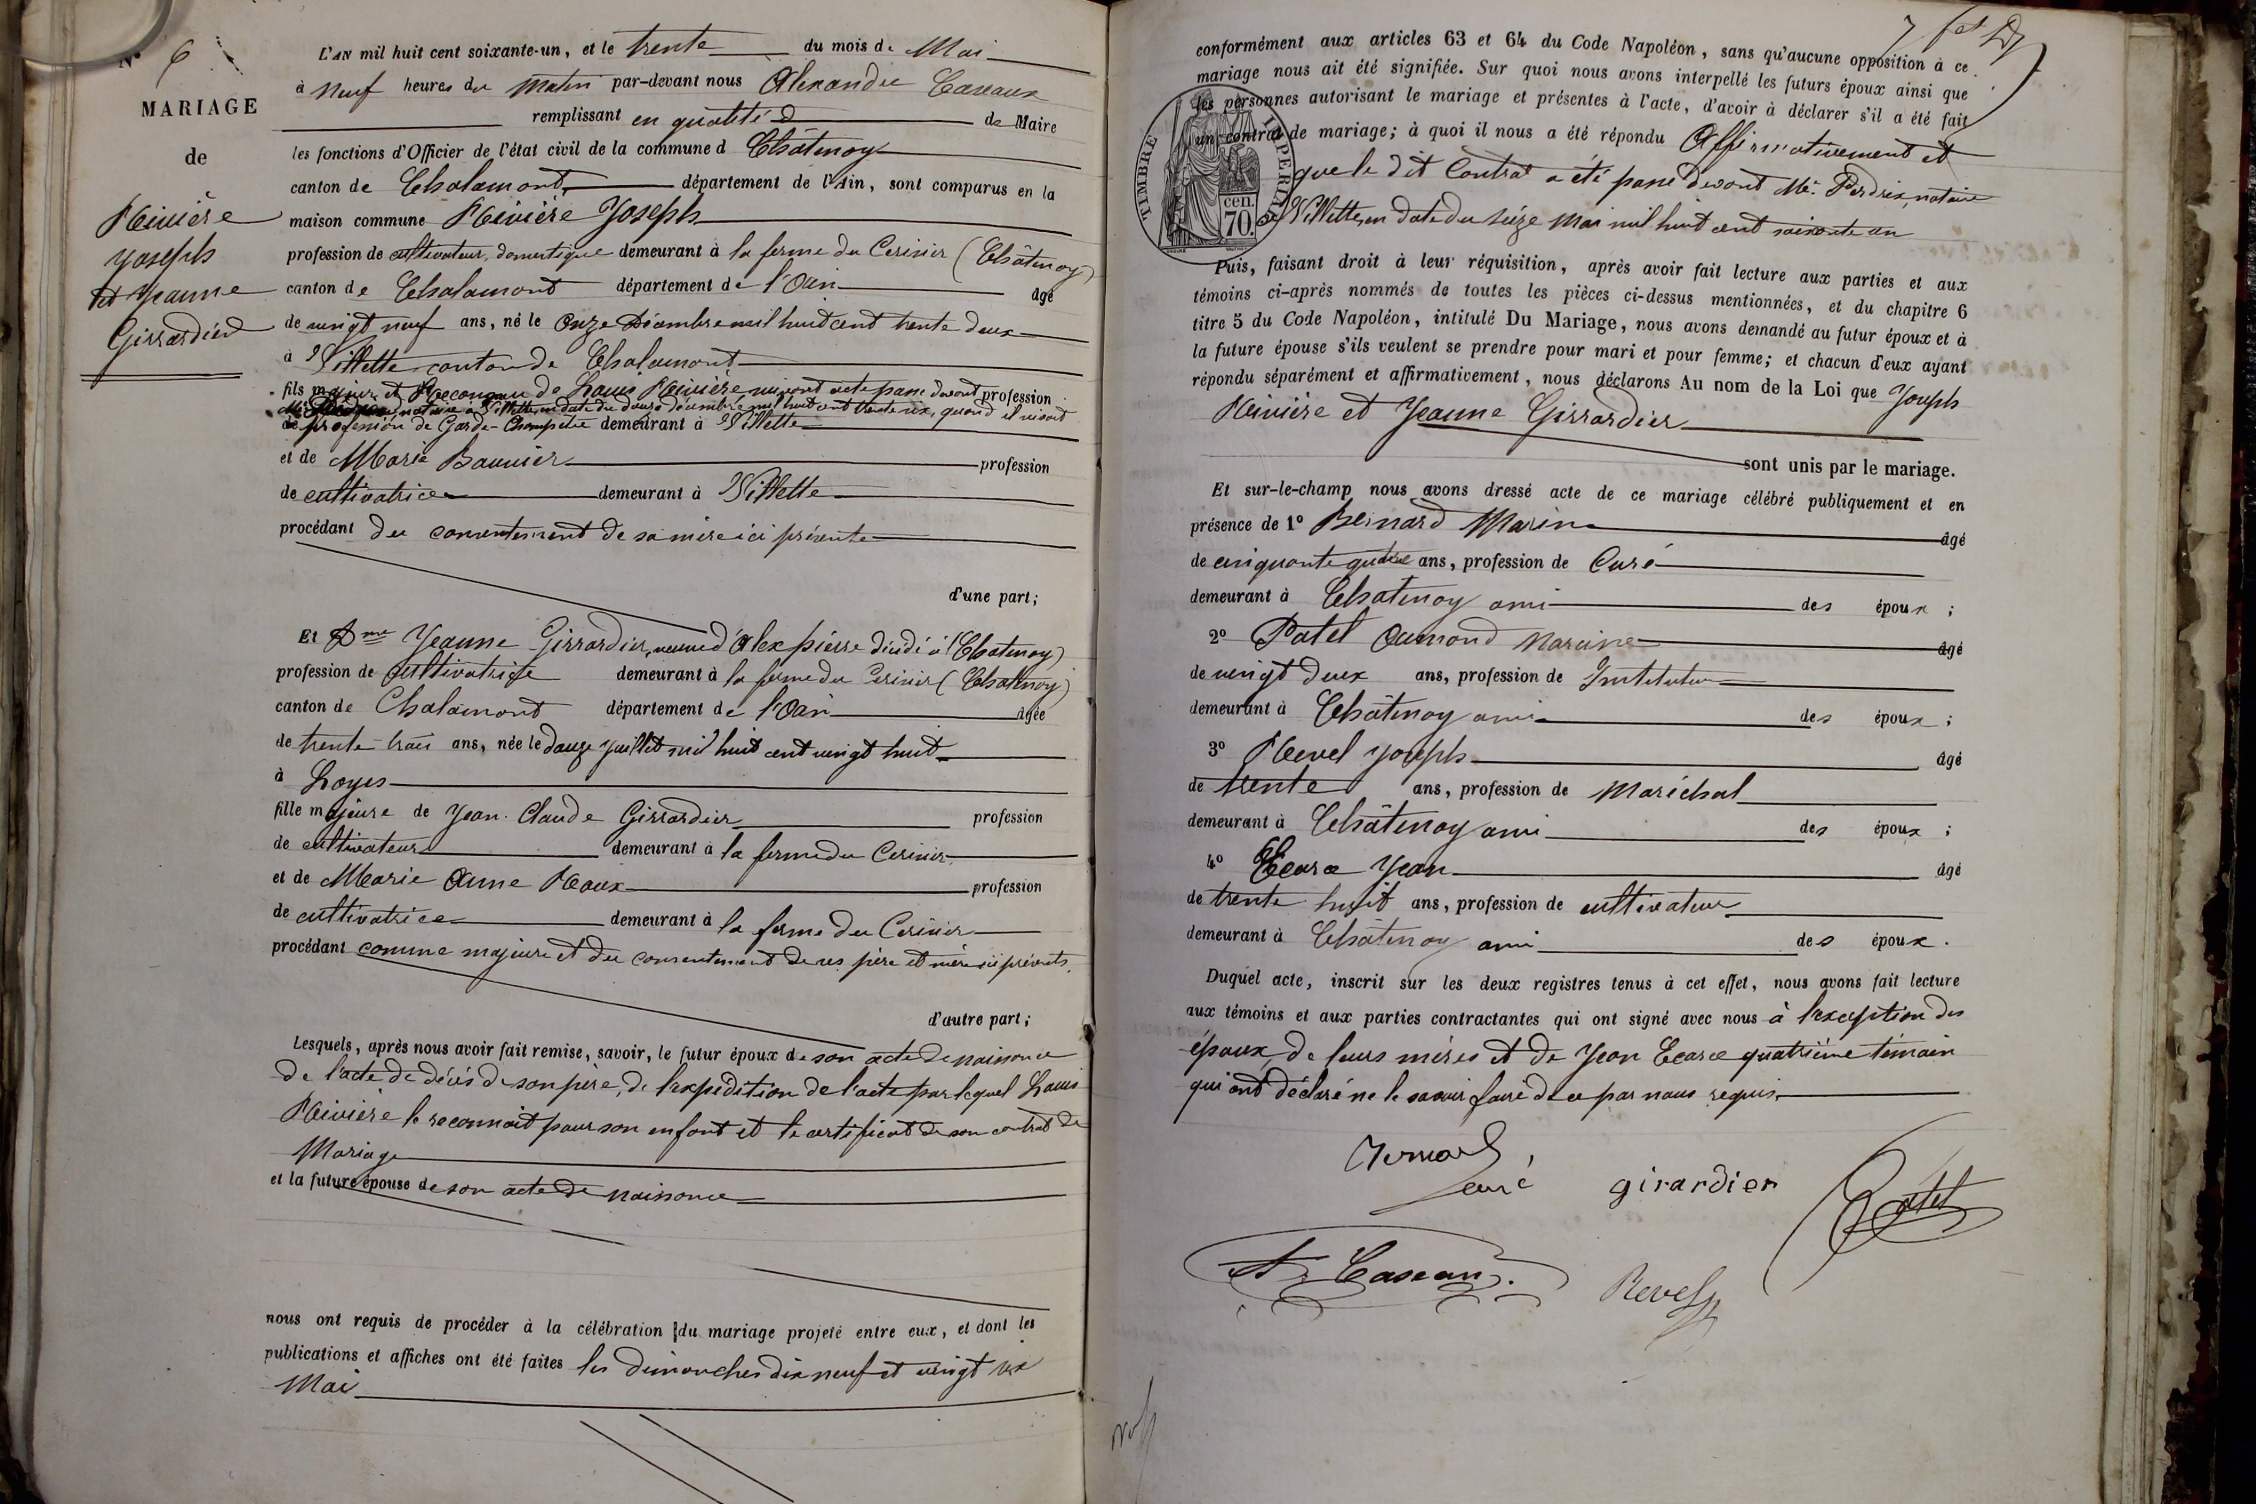 N° 6
MARIAGE
de
Rivière
Joseph
et Jeanne
Girrardier
L'AN mil huit cent soixante-un, et le trente du mois de Mai
à neuf heures du matin par-devant nous Alexandre Caseaux
remplissant en qualité d de Maire
les fonctions d'Officier de l'état civil de la commune d Châtenoy
canton de Chalamont, département de l'Ain, sont comparus en la
maison commune Rivière Joseph
profession de cultivateur, domestique demeurant à la ferme du Cerisier (Châtenoy)
canton de Chalamont département de l'Ain âgé
de vingt neuf ans, né le onze Décembre mil huit cent trente deux
à Villette canton de Chalamont
fils majeur et Reconnu de Louis Rivière suivant acte passé devant profession
Me notaire à Villette, en date du douze Décembre mil huit cent trente six, quand il vivait
de profession de Garde-Champêtre demeurant à Villette
et de Marie Baunier profession
de cultivatrice demeurant à Villette
procédant du consentement de sa mère ici présente
d'une part;
Et Dme Jeanne Girrardier, veuve d'Alex pierre décédé à (Chatenoy)
profession de Cultivatrice demeurant à la ferme du Cerisier (Chatenoy)
canton de Chalamont département de l'Ain âgée
de trente-trois ans, née le douze Juillet mil huit cent vingt huit
à Loyes
fille majeure de Jean-Claude Girrardier profession
de cultivateur demeurant à la ferme du Cerisier
et de Marie Anne Roux profession
de cultivatrice demeurant à la ferme du Cerisier
procédant comme majeure et du consentement de ses père et mère ici présents,
d'autre part;
Lesquels, après nous avoir fait remise, savoir, le futur époux de son acte de naissance
de l'acte de décès de son père, de l'expédition de l'acte par lequel Louis
Rivière le reconnait pour son enfant et le certificat de son contrat de
Mariage
et la future épouse de son acte de naissance
nous ont requis de procéder à la célébration du mariage projeté entre eux, et dont les
publications et affiches ont été faites les dimanches dix neuf et vingt six
Mai
conformément aux articles 63 et 64 du Code Napoléon, sans qu'aucune opposition à ce
mariage nous ait été signifiée. Sur quoi nous avons interpellé les futurs époux ainsi que
les personnes autorisant le mariage et présentes à l'acte, d'avoir à déclarer s'il a été fait
un contrat de mariage; à quoi il nous a été répondu Affirmativement et
que le dit Contrat a été passé devant Me. Perdrix, notaire
à Villette, en date du seize Mai mil huit cent soixante un
TIMBRE IMPERIAL
cen.
70.
Puis, faisant droit à leur réquisition, après avoir fait lecture aux parties et aux
témoins ci-après nommés de toutes les pièces ci-dessus mentionnées, et du chapitre 6
titre 5 du Code Napoléon, intitulé Du Mariage, nous avons demandé au futur époux et à
la future épouse s'ils veulent se prendre pour mari et pour femme; et chacun d'eux ayant
répondu séparément et affirmativement, nous déclarons Au nom de la Loi que Joseph
Rivière et Jeanne Girrardier
sont unis par le mariage.
Et sur-le-champ nous avons dressé acte de ce mariage célébré publiquement et en
présence de 1° Bernard Marin âgé
de cinquante quatre ans, profession de Curé
demeurant à Châtenoy ami des époux;
2° Patel Aumond Narcisse âgé
de vingt deux ans, profession de Instituteur
demeurant à Châtenoy ami des époux;
3° Revel Joseph âgé
de trente ans, profession de Maréchal
demeurant à Châtenoy ami des époux;
4° Ecarce Jean âgé
de trente huit ans, profession de cultivateur
demeurant à Châtenoy ami des époux.
Duquel acte, inscrit sur les deux registres tenus à cet effet, nous avons fait lecture
aux témoins et aux parties contractantes qui ont signé avec nous à l'exception des
époux, de leurs mères et de Jean Ecarce quatrième témoin
qui ont déclaré ne le savoir faire de ce par nous requis.
Bernard,
curé
girardier
Patel
Ax Caseaux.
Revel